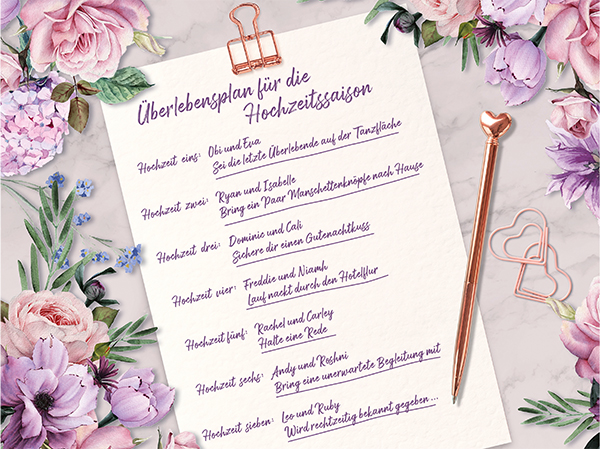 Überlebensplan für die
Hochzeitssaison
Hochzeit eins: Obi und Eva
Sei die letzte Überlebende auf der Tanzfläche
Hochzeit zwei: Ryan und Isabelle
Bring ein Paar Manschettenknöpfe nach Hause
Hochzeit drei: Dominic und Cali
Sichere dir einen Gutenachtkuss
Hochzeit vier: Freddie und Niamh
Lauf nackt durch den Hotelflur
Hochzeit fünf: Rachel und Carley
Halte eine Rede
Hochzeit sechs: Andy und Roshni
Bring eine unerwartete Begleitung mit
Hochzeit sieben: Leo und Ruby
Wird rechtzeitig bekannt gegeben ...